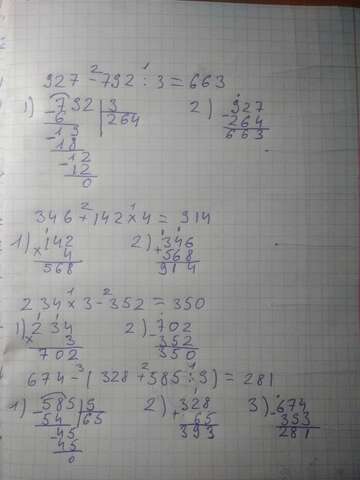 927 - 792 : 3 = 663
2 1
1) 792 | 3 2) 927
- 6 264 - 264
19 663
- 18
12
- 12
0
346 + 142 x 4 = 914
2 1
1) 142 2) 346
x 4 + 568
568 914
234 x 3 - 352 = 350
1 2
1) 234 2) 702
x 3 - 352
702 350
674 - ( 328 + 585 : 9 ) = 281
3 2 1
1) 585 | 9 2) 328 3) 674
- 54 65 + 65 - 393
45 393 281
- 45
0